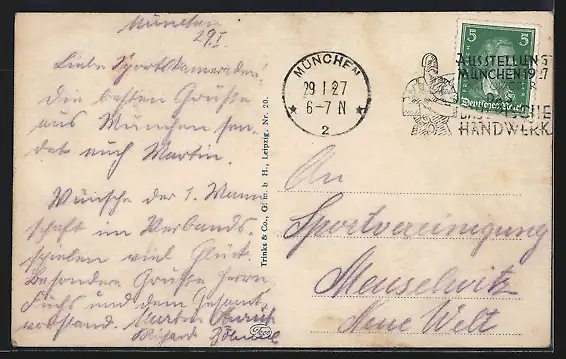 München
29. I.
Liebe Sportskameraden!
Die besten Grüße
aus München sen-
det euch Martin.
Wünsche der 1. Mann
schaft im Verbands-
spielen viel Glück.
Besondere Grüße Herrn
Fuchs und dem Gesamt-
vorstand. Martin
Richard
Trinks & Co., G. m. b. H., Leipzig. Nr. 20.
MÜNCHEN
29.1.27
6-7 N
2
AUSSTELLUNG
MÜNCHEN 1927
HANDWERK
5 5
Deutsches Reich
An
Sportvereinigung
Meuselwitz
Neue Welt